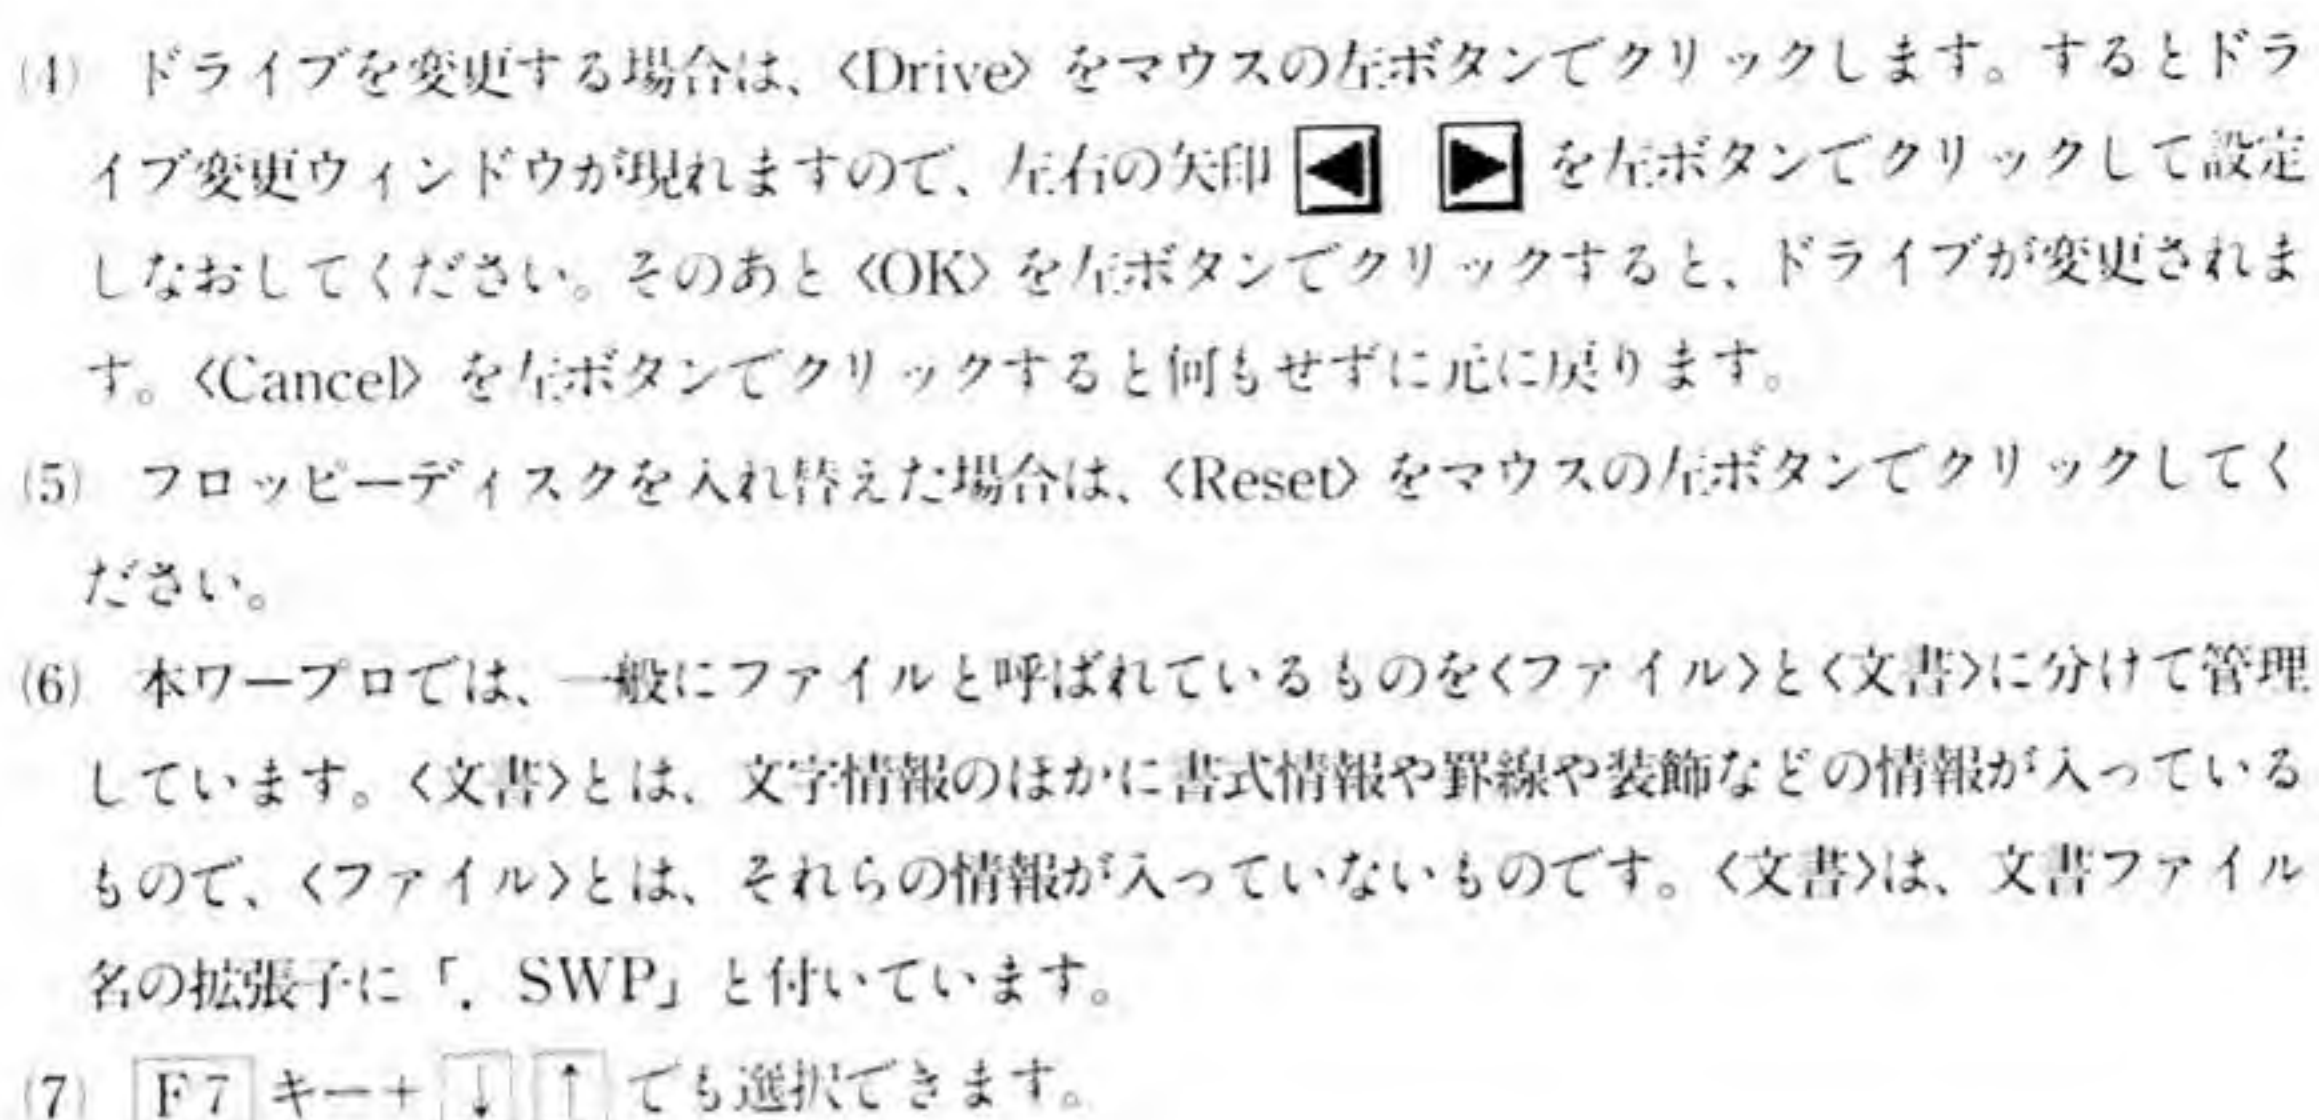 (4) ドライブを変更する場合は、〈Drive〉をマウスの左ボタンでクリックします。するとドラ
イブ変更ウィンドウが現れますので、左右の矢印 ◀ ▶ を左ボタンでクリックして設定
しなおしてください。そのあと〈OK〉を左ボタンでクリックすると、ドライブが変更されま
す。〈Cancel〉を左ボタンでクリックすると何もせずに元に戻ります。
(5) フロッピーディスクを入れ替えた場合は、〈Reset〉をマウスの左ボタンでクリックしてく
ださい。
(6) 本ワープロでは、一般にファイルと呼ばれているものを〈ファイル〉と〈文書〉に分けて管理
しています。〈文書〉とは、文字情報のほかに書式情報や罫線や装飾などの情報が入っている
もので、〈ファイル〉とは、それらの情報が入っていないものです。〈文書〉は、文書ファイル
名の拡張子に「．SWP」と付いています。
(7) F7 キー＋ ↓ ↑ でも選択できます。